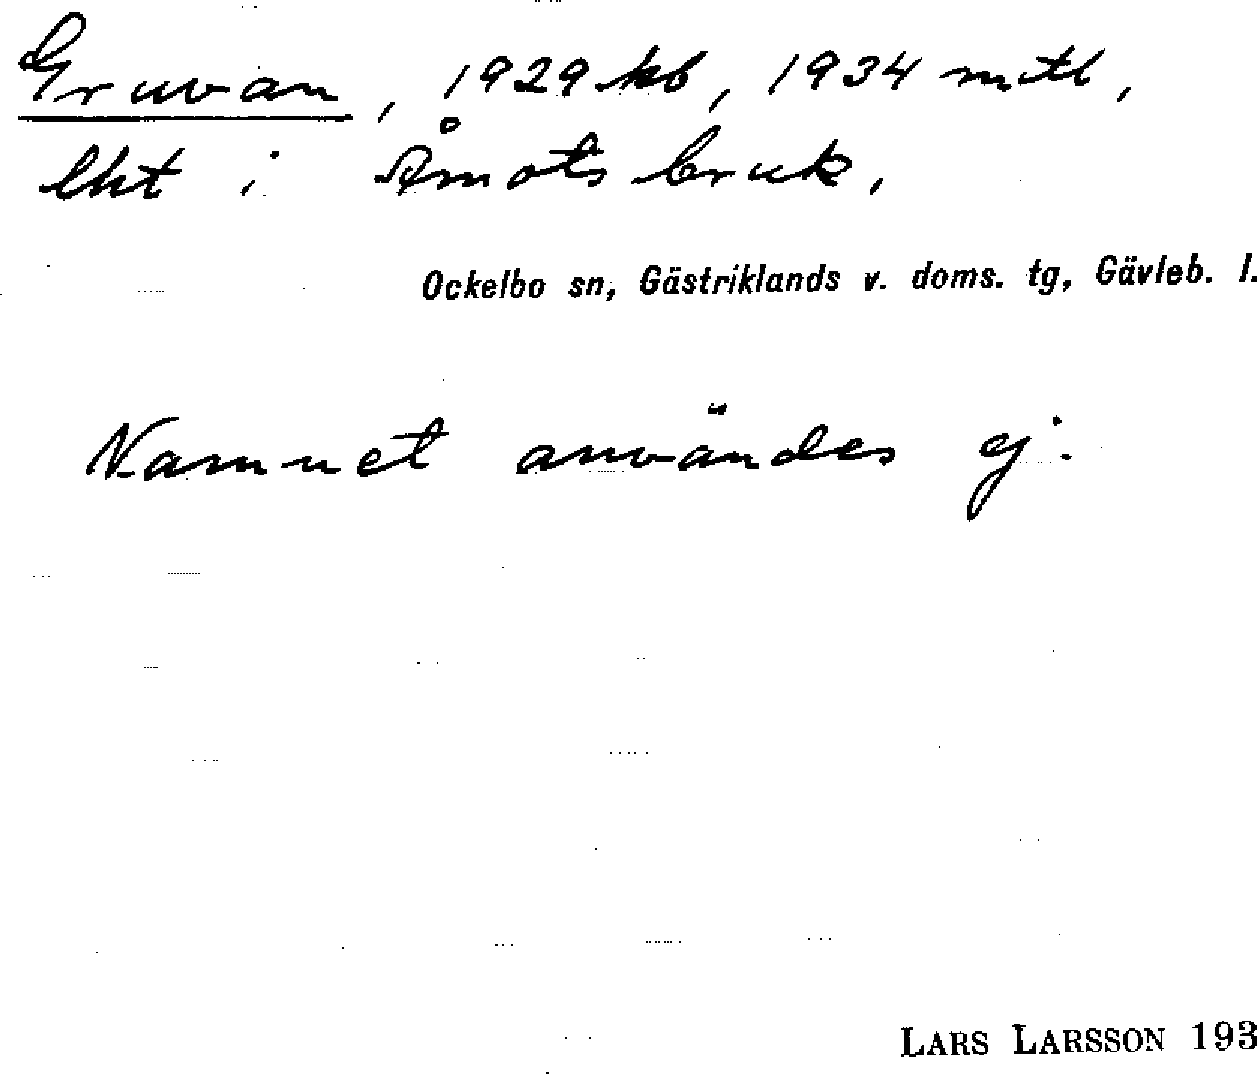 Gruvan, 1929 kb, 1934 mtl,
lht i Åmots bruk.
Ockelbo sn, Gästriklands v. doms. tg, Gävleb. l.
Namnet användes ej.
LARS LARSSON 193